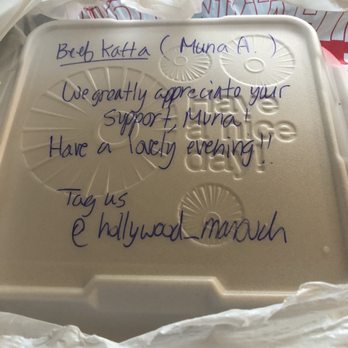 Beef Kafta ( Muna A. )
We greatly appreciate your
support, Muna!
Have a lovely evening!!
Have
a nice
day!
Tag us
@hollywood_manouch